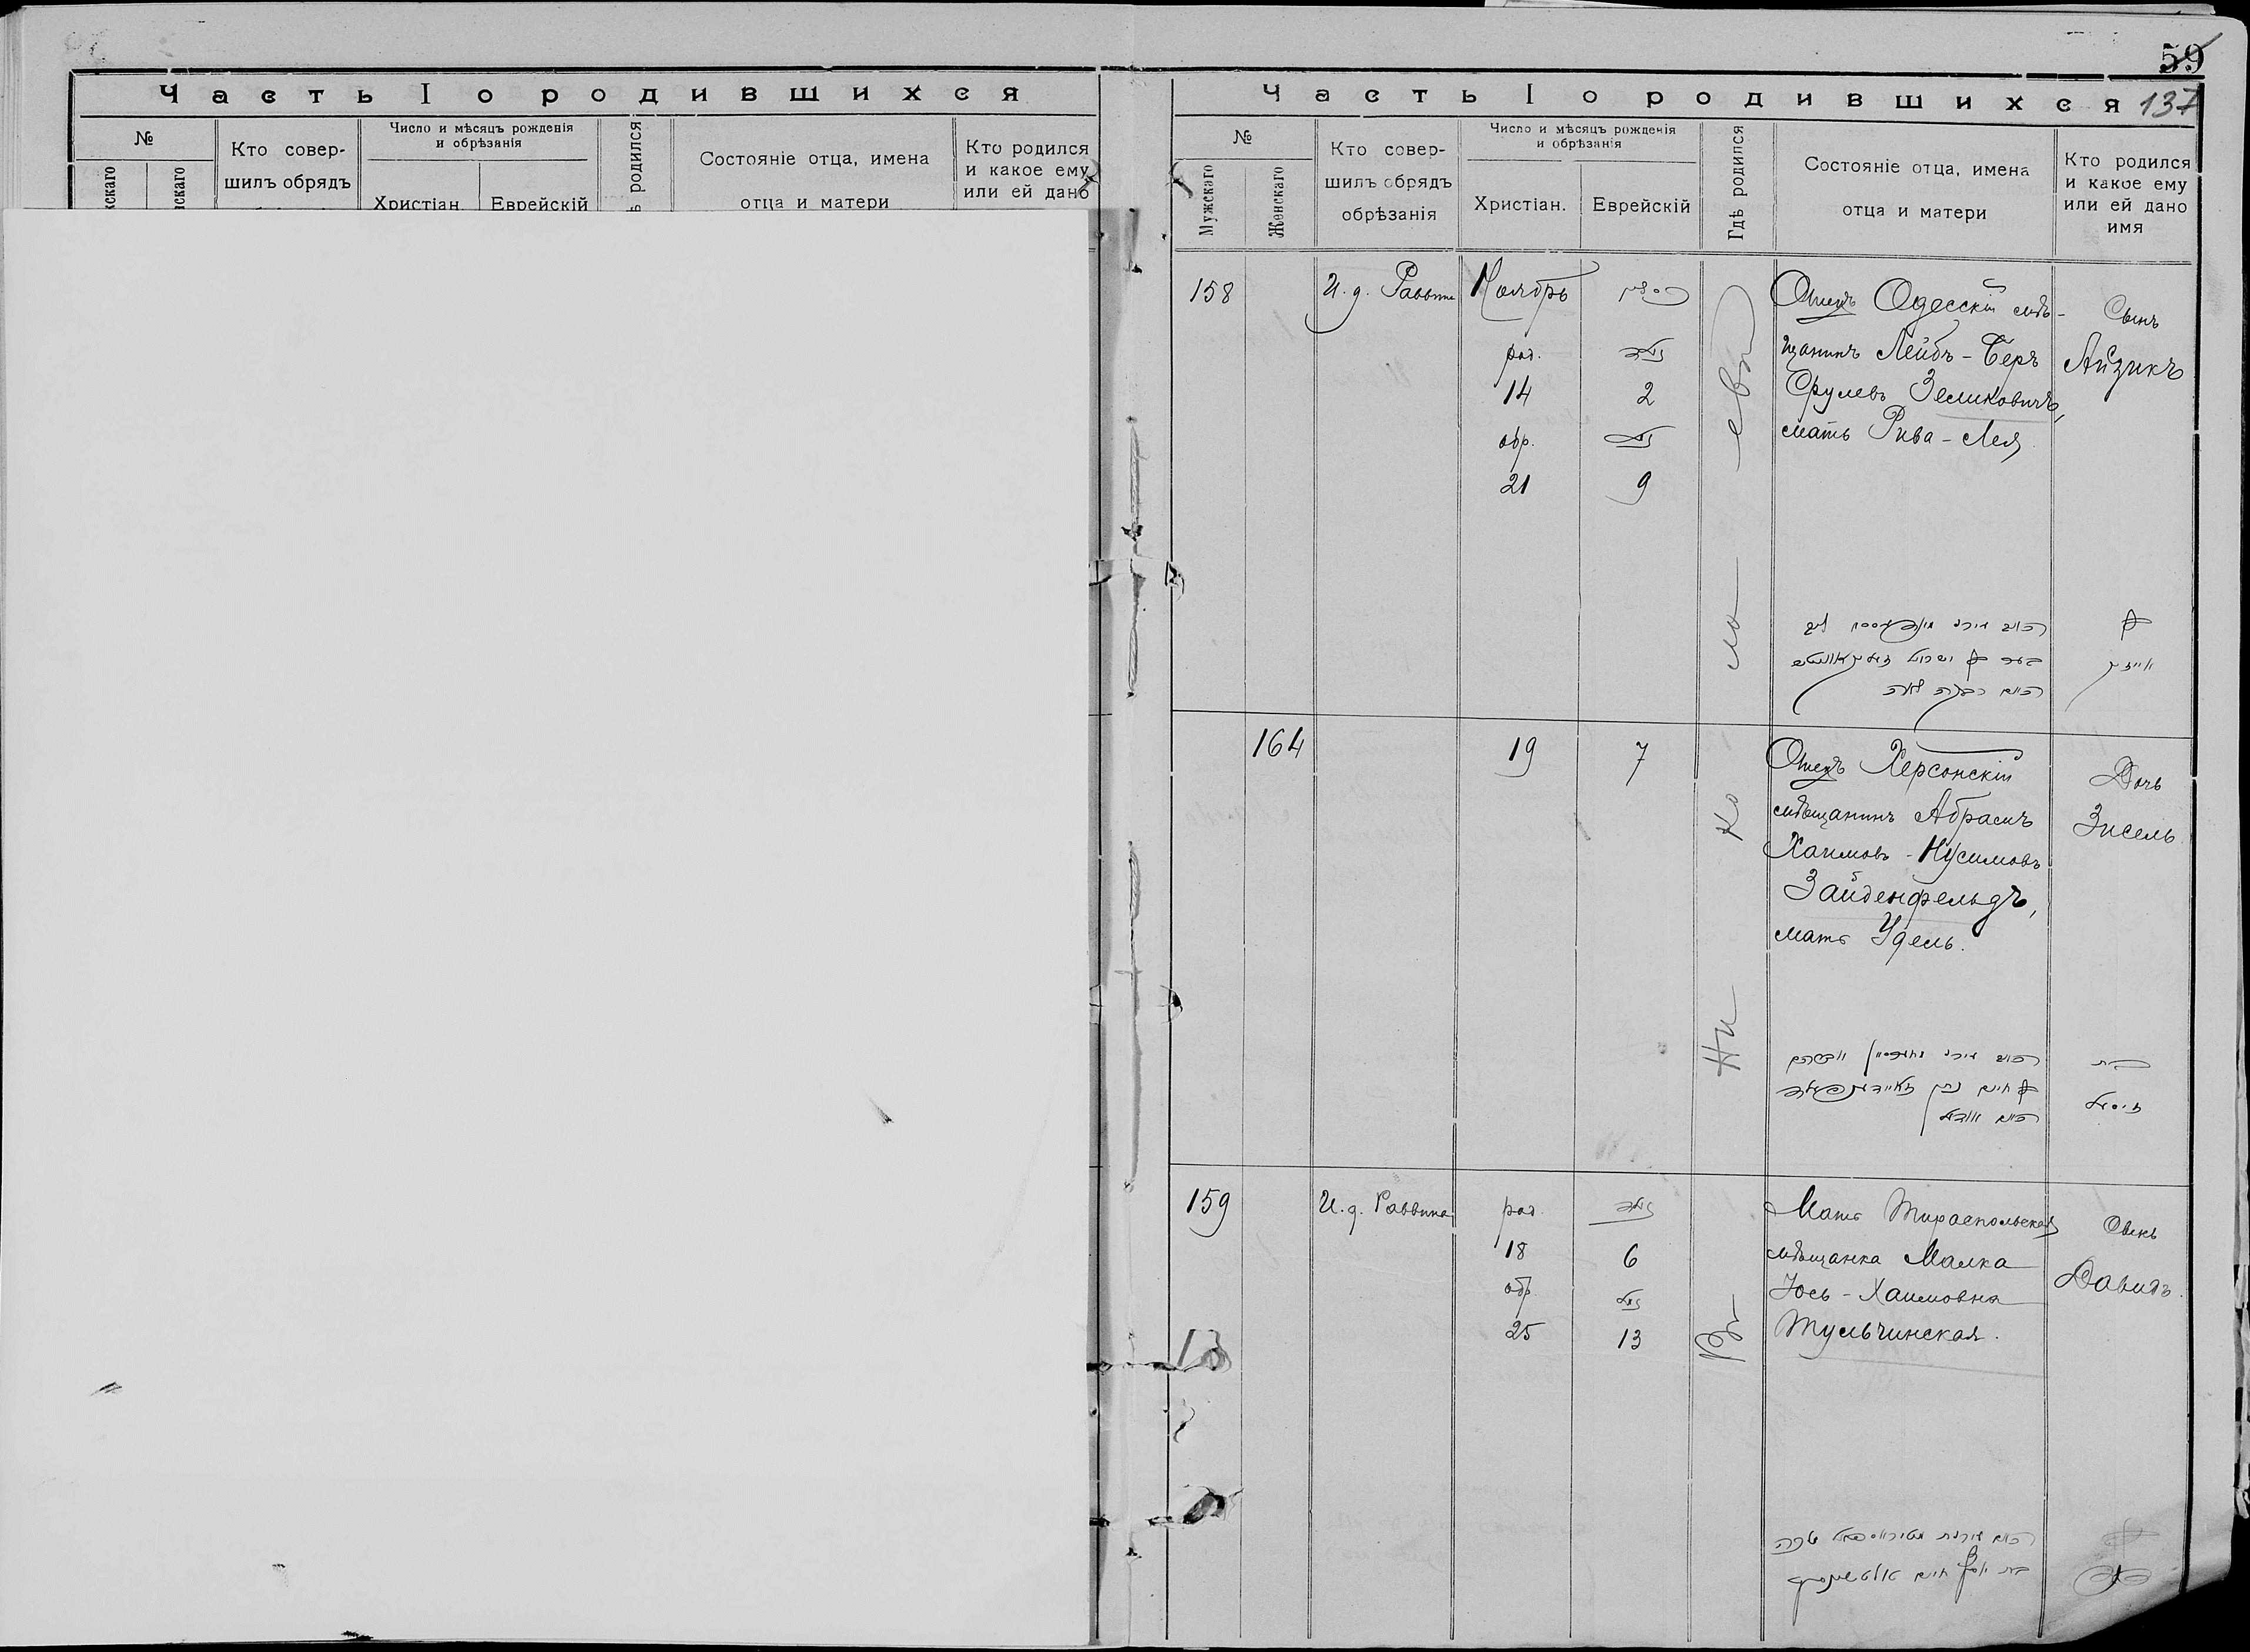 59
137
Часть I о родившихся
№
Кто совер-
шилъ обрядъ
Число и мѣсяцъ рожденія
и обрѣзанія
Христіан.
Еврейскій
родился
Состояніе отца, имена
отца и матери
Кто родился
и какое ему
или ей дано
Часть I о родившихся
№
Мужскаго
Женскаго
Кто совер-
шилъ обрядъ
обрѣзанія
Число и мѣсяцъ рожденія
и обрѣзанія
Христіан.
Еврейскій
Гдѣ родился
Состояніе отца, имена
отца и матери
Кто родился
и какое ему
или ей дано
имя
Въ Николаевѣ
158
И. д. Раввина
Ноябрь
род.
14
2
обр.
21
9
Отецъ Одесскій мѣ-
щанинъ Лейбъ-Беръ
Срулевъ Зеликовичъ,
мать Рива-Лея
Сынъ
Айзикъ
164
19
7
Отецъ Херсонскій
мѣщанинъ Абрамъ
Хаимовъ-Нусимовъ
Зайденфельдъ,
мать Удель.
Дочь
Зисель
בת
זיסל
159
И. д. Раввина
род.
18
6
обр.
25
13
Мать Тираспольская
мѣщанка Малка
Юсь-Хаимовна
Тульчинская.
Сынъ
Давидъ.